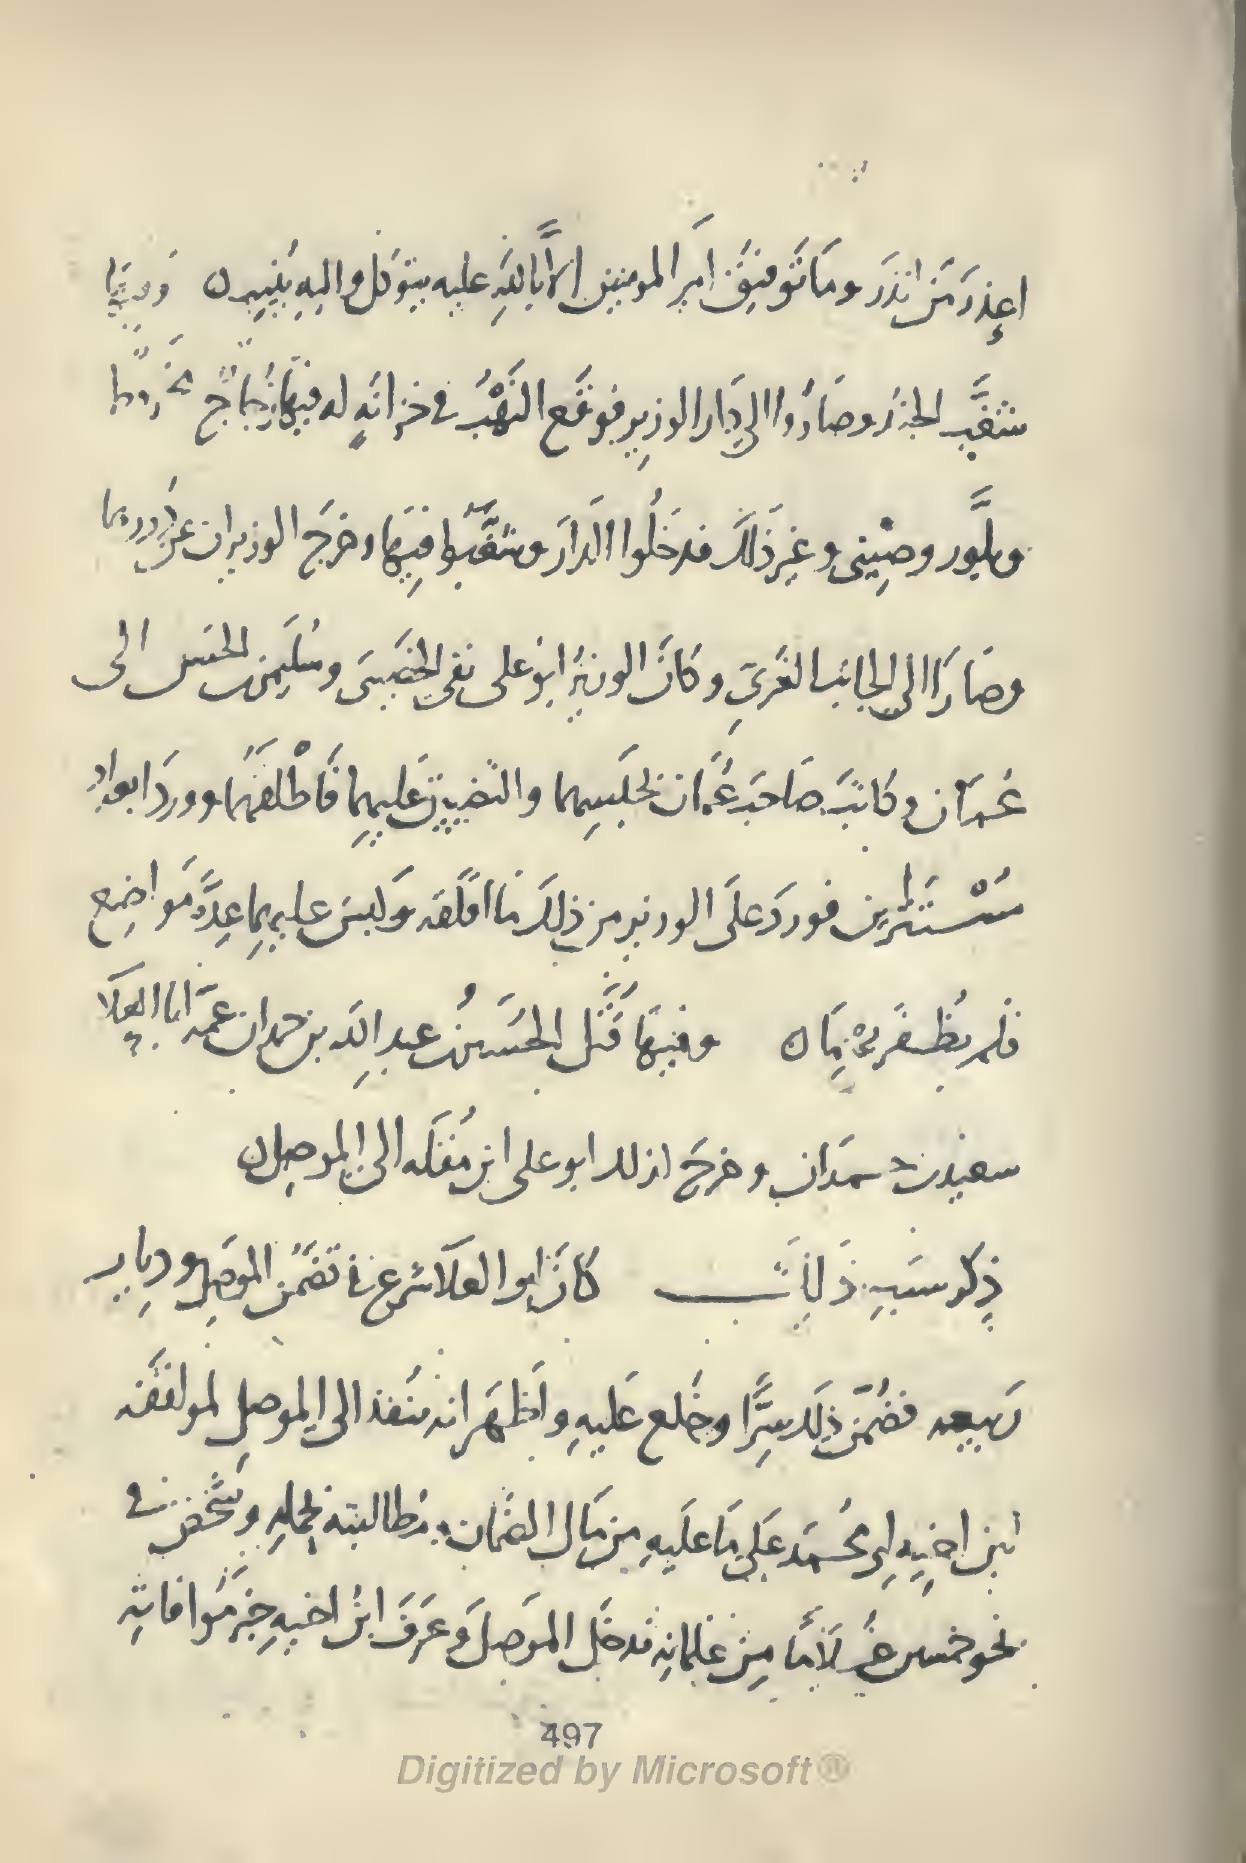 اعذر من انذر وما توفيق امير المومنين الا بالله عليه يتوكل واليه ينيب وفيها
شغب الجند وصاروا الى دار الوزير فوقع النهب في خزانه له فيها زجاج مخروط
وبلور وصيني وغير ذلك فدخلوا الدار وشغبوا فيها وخرج الوزيران عن دورهما
وصارا الى الجانب الغربي وكان الوزير ابو على نفى الخصيبي وسليمن بن الحسن الى
عمان وكاتب صاحب عمان بحبسهما والتضييق عليهما فاطلقهما ووردا بغداد
مستترين فورد على الوزير من ذلك ما اقلقه وكبس عليهما عدة مواضع
فلم يظفر بهما وفيها قتل الحسن بن عبد الله بن حمدان عمه ابا العلا
سعيد بن حمدان وخرج لذلك ابو على ابن مقله الى الموصل
ذكر سبب ذلك كان ابو العلا شرع في تضمن الموصل وديار
ربيعه فضمن ذلك سرا وخلع عليه واظهر انه ينفذ الى الموصل لموافقه
ابن اخيه ابي محمد على ما عليه من مال الضمان ومطالبته بحمله وشخص في
نحو خمسين غلاما من غلمانه فدخل الموصل وعرف ابن اخيه خبر موافاته
497
Digitized by Microsoft®